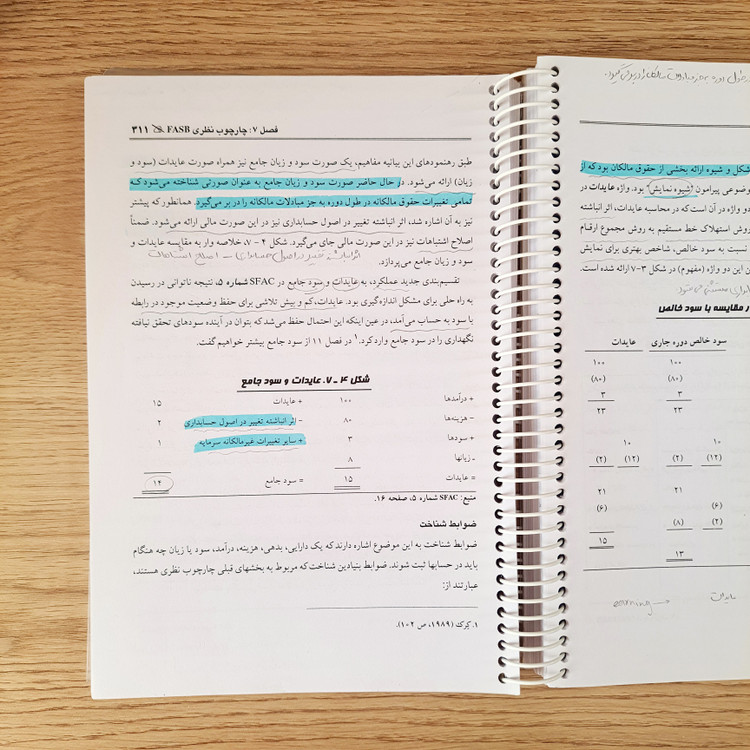 فصل ۷: چارچوب نظری FASB ۳۱۱
طبق رهنمودهای این بیانیه مفاهیم، یک صورت سود و زیان جامع نیز همراه صورت عایدات (سود و
زیان) ارائه می‌شود. در حال حاضر صورت سود و زیان جامع به عنوان صورتی شناخته می‌شود که
تمامی تغییرات حقوق مالکانه در طول دوره به جز مبادلات مالکانه را در بر می‌گیرد. همانطور که پیشتر
نیز به آن اشاره شد، اثر انباشته تغییر در اصول حسابداری نیز در این صورت مالی ارائه می‌شود. ضمناً
اصلاح اشتباهات نیز در این صورت مالی جای می‌گیرد. شکل ۴ - ۷، خلاصه وار به مقایسه عایدات و
سود و زیان جامع می‌پردازد.
تقسیم‌بندی جدید عملکرد، به عایدات و سود جامع در SFAC شماره ۵، نتیجه ناتوانی در رسیدن
به راه حلی برای مشکل اندازه‌گیری بود. عایدات، کم و بیش تلاشی برای حفظ وضعیت موجود در رابطه
با سود به حساب می‌آمد، در عین اینکه این احتمال حفظ می‌شد که بتوان در آینده سودهای تحقق نیافته
نگهداری را در سود جامع وارد کرد.۱ در فصل ۱۱ از سود جامع بیشتر خواهیم گفت.
شکل ۴ - ۷. عایدات و سود جامع
+ درآمدها ۱۰۰ + عایدات ۱۵
- هزینه‌ها ۸۰ - اثر انباشته تغییر در اصول حسابداری ۲
+ سودها ۳ + سایر تغییرات غیرمالکانه سرمایه ۱
- زیانها ۸
= عایدات ۱۵ = سود جامع ۱۴
منبع: SFAC شماره ۵، صفحه ۱۶.
ضوابط شناخت
ضوابط شناخت به این موضوع اشاره دارند که یک دارایی، بدهی، هزینه، درآمد، سود یا زیان چه هنگام
باید در حسابها ثبت شوند. ضوابط بنیادین شناخت که مربوط به بخشهای قبلی چارچوب نظری هستند،
عبارتند از:
۱. کرک (۱۹۸۹، ص ۱۰۲).
شکل و شیوه ارائه بخشی از حقوق مالکان بود که از
وضوعی پیرامون "شیوه نمایش" بود. واژه عایدات در
دو واژه در آن است که در محاسبه عایدات، اثر انباشته
روش استهلاک خط مستقیم به روش مجموع ارقام
نسبت به سود خالص، شاخص بهتری برای نمایش
ن این دو واژه (مفهوم) در شکل ۳-۷ ارائه شده است.
ر مقایسه با سود خالص
سود خالص دوره جاری عایدات
۱۰۰ ۱۰۰
(۸۰) (۸۰)
۳ ۳
۲۳ ۲۳
۱۰ ۱۰
(۱۲) (۲) (۱۲) (۲)
۲۱ ۲۱
(۶) (۶)
(۲) (۸)
۱۵
۱۳
عایدات
earning